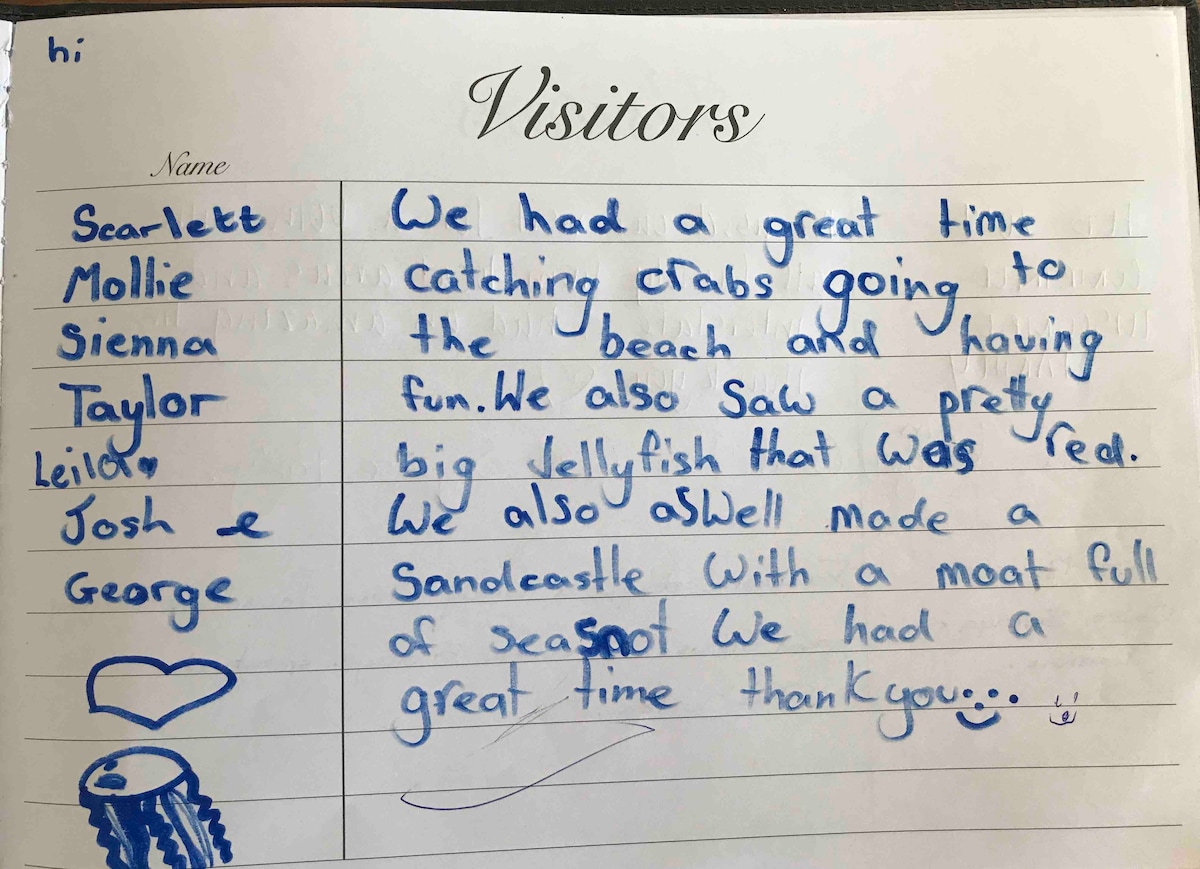 hi
Visitors
Name
Scarlett
We had a great time
Mollie
catching crabs going to
Sienna
the beach and having
Taylor
fun. We also saw a pretty
Leila
big Jellyfish that was red.
Josh e
We also aswell made a
George
Sandcastle with a moat full
of seasnot We had a
great time thankyou...